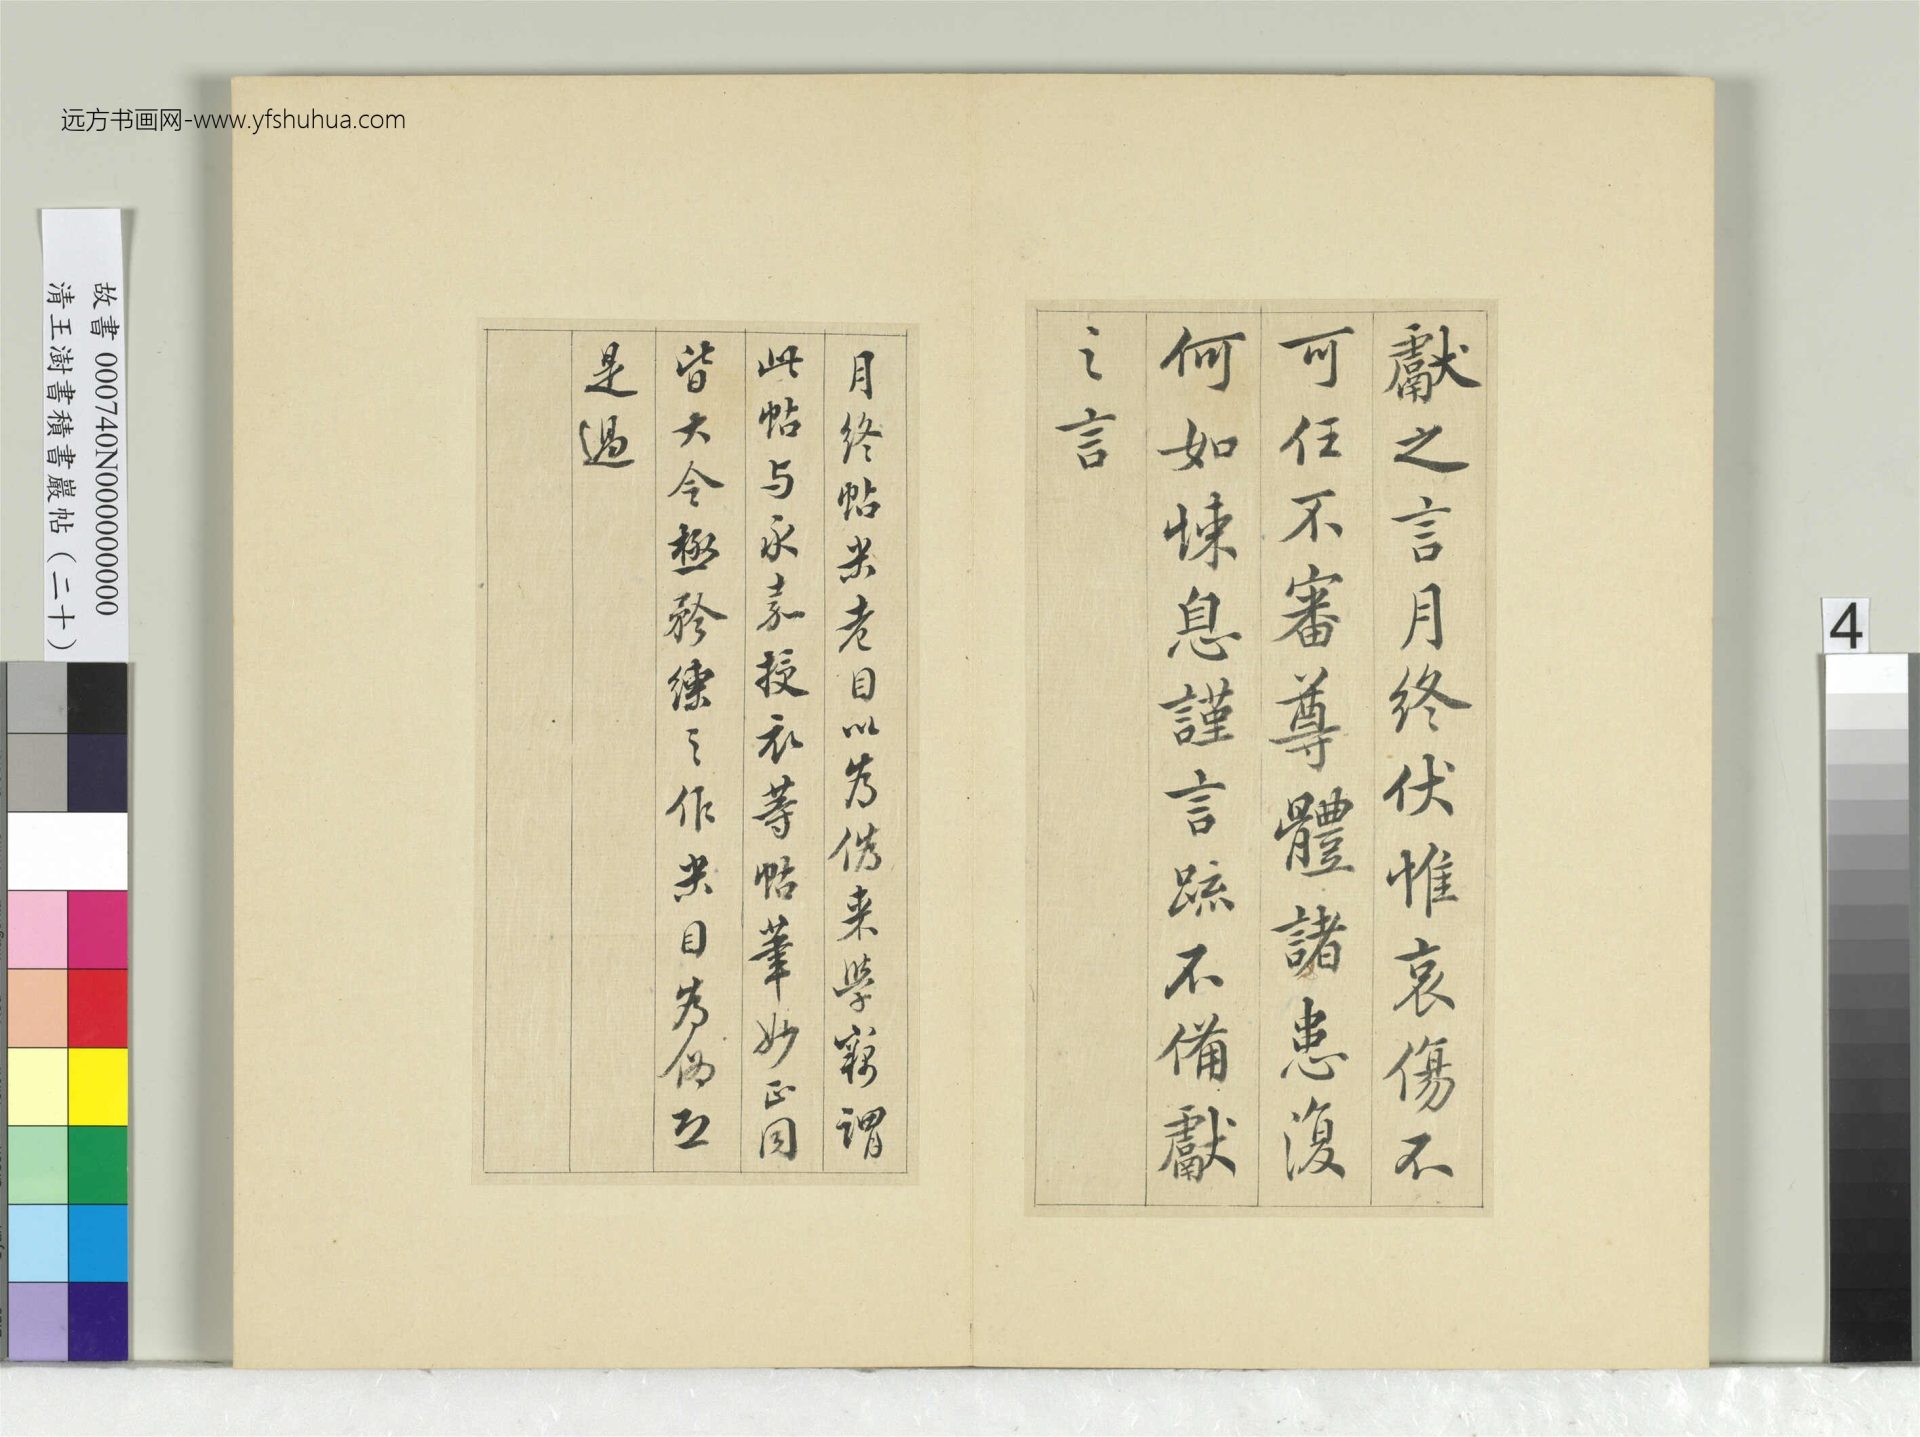 远方书画网-www.yfshuhua.com
故書 000740N000000000
清王澍書積書巖帖（二十）
4
獻之言月終伏惟哀傷不
可任不審尊體諸患復
何如悚息謹言疏不備獻
之言
月終帖米老目以為偽來學竊謂
此帖与永嘉授衣等帖筆妙正同
皆大令極矜練之作米目為偽
是過